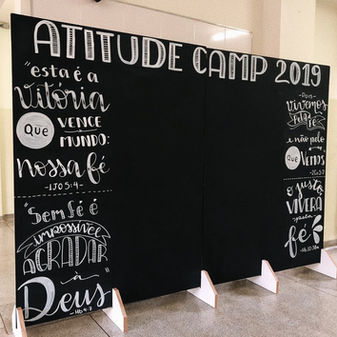 ATITUDE CAMP 2019
"esta é a
Vitória
Que VENCE
MUNDO:
nossa fé
-1JO 5:4-
"Sem fé é
impossível
AGRADAR
à
Deus"
Pois
Vivemos
pela fé
e não pelo
Que Vemos
O justo
VIVERÁ
pela
fé